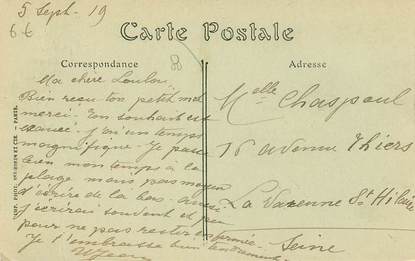 5 Sept. 19
6 €
Carte Postale
Correspondance
Adresse
Ma chère Loulou
Bien reçu ton petit mot
merci. Ton souhait est
exaucé. J'ai un temps
magnifique. Je passe
bien mon temps à la
plage mais pas moyen
d'écrire de là bas. aussi
j'écrirai souvent et peu
pour ne pas rester enfermée.
Je t'embrasse bien tendrement
Melle Chaspoul
16 avenue Thiers
La Varenne St Hilaire
Seine